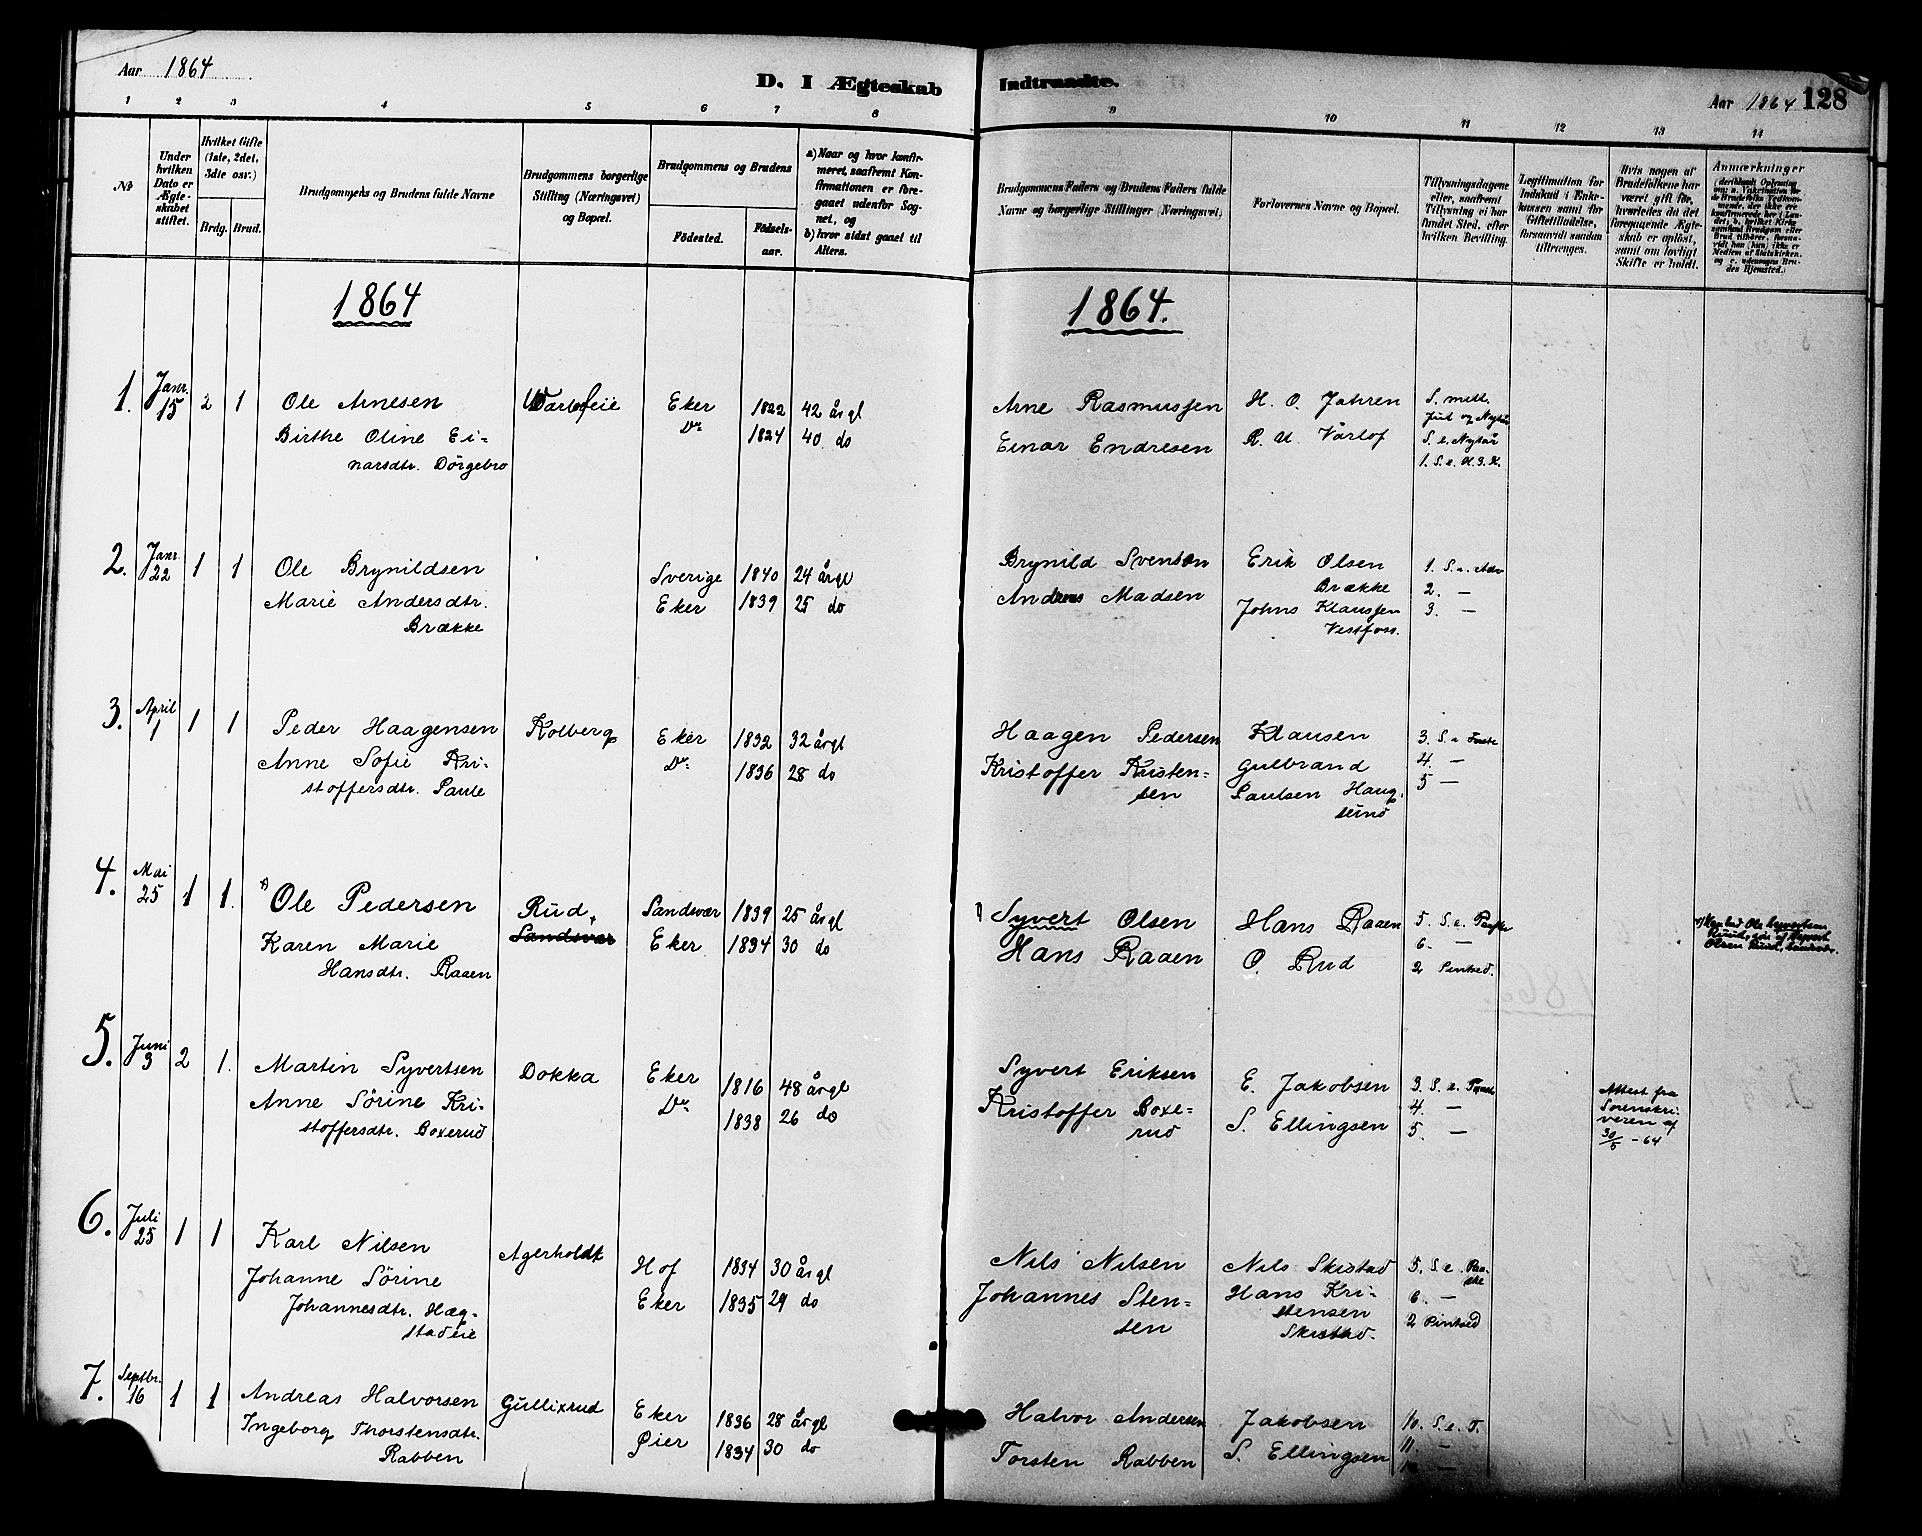 Aar 1864
D. I Ægteskab
1 2 3 4 5 6 7 8
№
Under hvilken Dato er Ægteskabet stiftet.
Hvilket Gifte (1ste, 2det, 3die osv.)
Brdg. Brud.
Brudgommens og Brudens fulde Navne
Brudgommens borgerlige Stilling (Næringsvei) og Bopæl.
Brudgommens og Brudens
Födested.
Födselsaar.
a) Naar og hvor konfirmeret, saafremt Konfirmationen er foregaaet udenfor Sognet, og
b) hvor sidst gaaet til Alters.
1864
1. Janr. 15 2 1 Ole Arnesen Eker 1822 42 årgl
Birthe Oline Ei- Do 1824 40 do
narsdtr. Dörgebro
2. Janr. 22 1 1 Ole Brynildsen Sverige 1840 24 årgl
Marie Andersdtr. Eker 1839 25 do
Brække
3. April 1 1 1 Peder Haagensen Kolberg Eker 1832 32 årgl
Anne Sofie Kri- Do 1836 28 do
stoffersdtr. Paule
4. Mai 25 1 1. Ole Pedersen Rud, Sandsvær 1839 25 årgl
Karen Marie Sandsvær Eker 1834 30 do
Hansdtr. Raaen
5. Juni 3 2 1. Martin Syvertsen Dokka Eker 1816 48 årgl
Anne Sörine Kri- Do 1838 26 do
stoffersdtr. Boxerud
6. Juli 25 1 1 Karl Nilsen Agerholdt Hof 1834 30 årgl
Johanne Sörine Eker 1835 29 do
Johannesdtr. Hæg-
stadeie
7. Septbr. 16 1 1 Andreas Halvorsen Gullixrud Eker 1836 28 årgl
Ingeborg Thorstensdtr. Öier 1834 30 do
Rabben
Indtraadte.
Aar 1864 128
9 10 11 12 13 14
Brudgommens Faders og Brudens Faders fulde Navne og borgerlige Stillinger (Næringsvei).
Forlovernes Navne og Bopæl.
Tillysningsdagene eller, saafremt Tillysning ei har fundet Sted, efter hvilken Bevilling.
Legitimation for Indskud i Enkekassen samt for Giftetilladelse, forsaavidt saadan tiltrænges.
Hvis nogen af Brudefolkene har været gift før, hvorledes da det foregaaende Ægteskab er opløst, samt om lovligt Skifte er holdt.
Anmærkninger
1864.
Arne Rasmussen H. O. Jahren S. mell.
Jul og Nytår
Einar Endresen R. U. Vårlof S. e. Nytår
1. S. e. H. 3. K.
Brynild Svenson Erik Olsen 1. S. e. Adv
Brække 2. —
Andreas Madsen Johns Klaussen 3. —
Vestfoss.
Haagen Pedersen Klausen 3. S. e Faste
Kristoffer Kristen- Gulbrand 4. —
sen Paulsen Haug- 5 —
sund
Syvert Olsen Hans Raaen 5. S. e. Paaske
Hans Raaen O. Rud 6. —
2 Pintsed.
Olsen Rud, Sandsvær.
Syvert Eriksen E. Jakobsen 3. S. e. Paaske
Kristoffer Boxe- S. Ellingsen 4. —
rud 5. —
Attest fra
Sorenskri-
veren af
30/5 - 64
Nils Nilsen Nils Skistad 5. S. e. Paa-
ske
Johannes Sten- Hans Kri- 6. —
sen stensen 2 Pintsed
Skistad.
Halvor Andersen Jakobsen 10. S. e. T.
Torsten Rabben S. Ellingsen 11. —